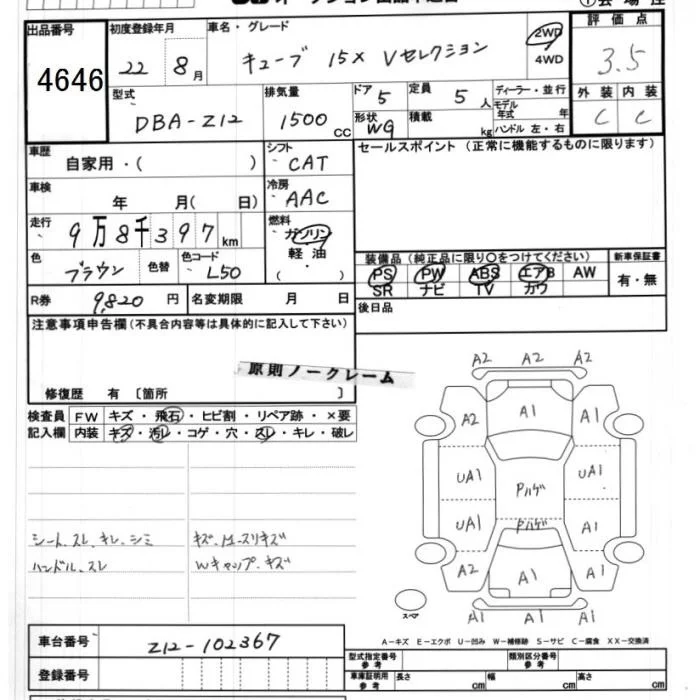 出品番号
4646
初度登録年月
22 8 月
車名・グレード
キューブ 15X Vセレクション
2WD
4WD
評価点
3.5
型式
DBA-Z12
排気量
1500 CC
ドア 5
定員 5 人
形状 WG
積載 kg
ディーラー・並行
モデル年式 年
ハンドル 左・右
外装 内装
C C
車歴
自家用・( )
シフト
CAT
セールスポイント (正常に機能するものに限ります)
車検
年 月( 日)
冷房
AAC
走行
9万8千397 km
燃料
ガソリン
軽油
( ・ )
色
ブラウン
色替
色コード
L50
装備品 (純正品に限り○をつけてください)
新車保証書
PS PW ABS エアB AW
SR ナビ TV カワ
有・無
R券 9,820 円
名変期限 月 日
後日品
注意事項申告欄 (不具合内容等は具体的に記入して下さい)
原則ノークレーム
修復歴 有 〔箇所 〕
検査員記入欄
FW キズ・飛石・ヒビ割・リペア跡・×要
内装 キズ・汚レ・コゲ・穴・スレ・キレ・破レ
シート.スレ.キレ.シミ
ハンドル.スレ
キズ.M-スリキズ
Wキャップ.キズ
A2 A2 A2
A2 A1 A1
UA1 Pハゲ UA1
UA1 Pハゲ A1
A2 A1 A1
A1 A1
スペア
A-キズ E-エクボ U-凹み W-補修跡 S-サビ C-腐食 XX-交換済
車台番号
Z12-102367
登録番号
型式指定番号 参考
類別区分番号 参考
車庫証明用 参考
長さ cm
幅 cm
高さ cm